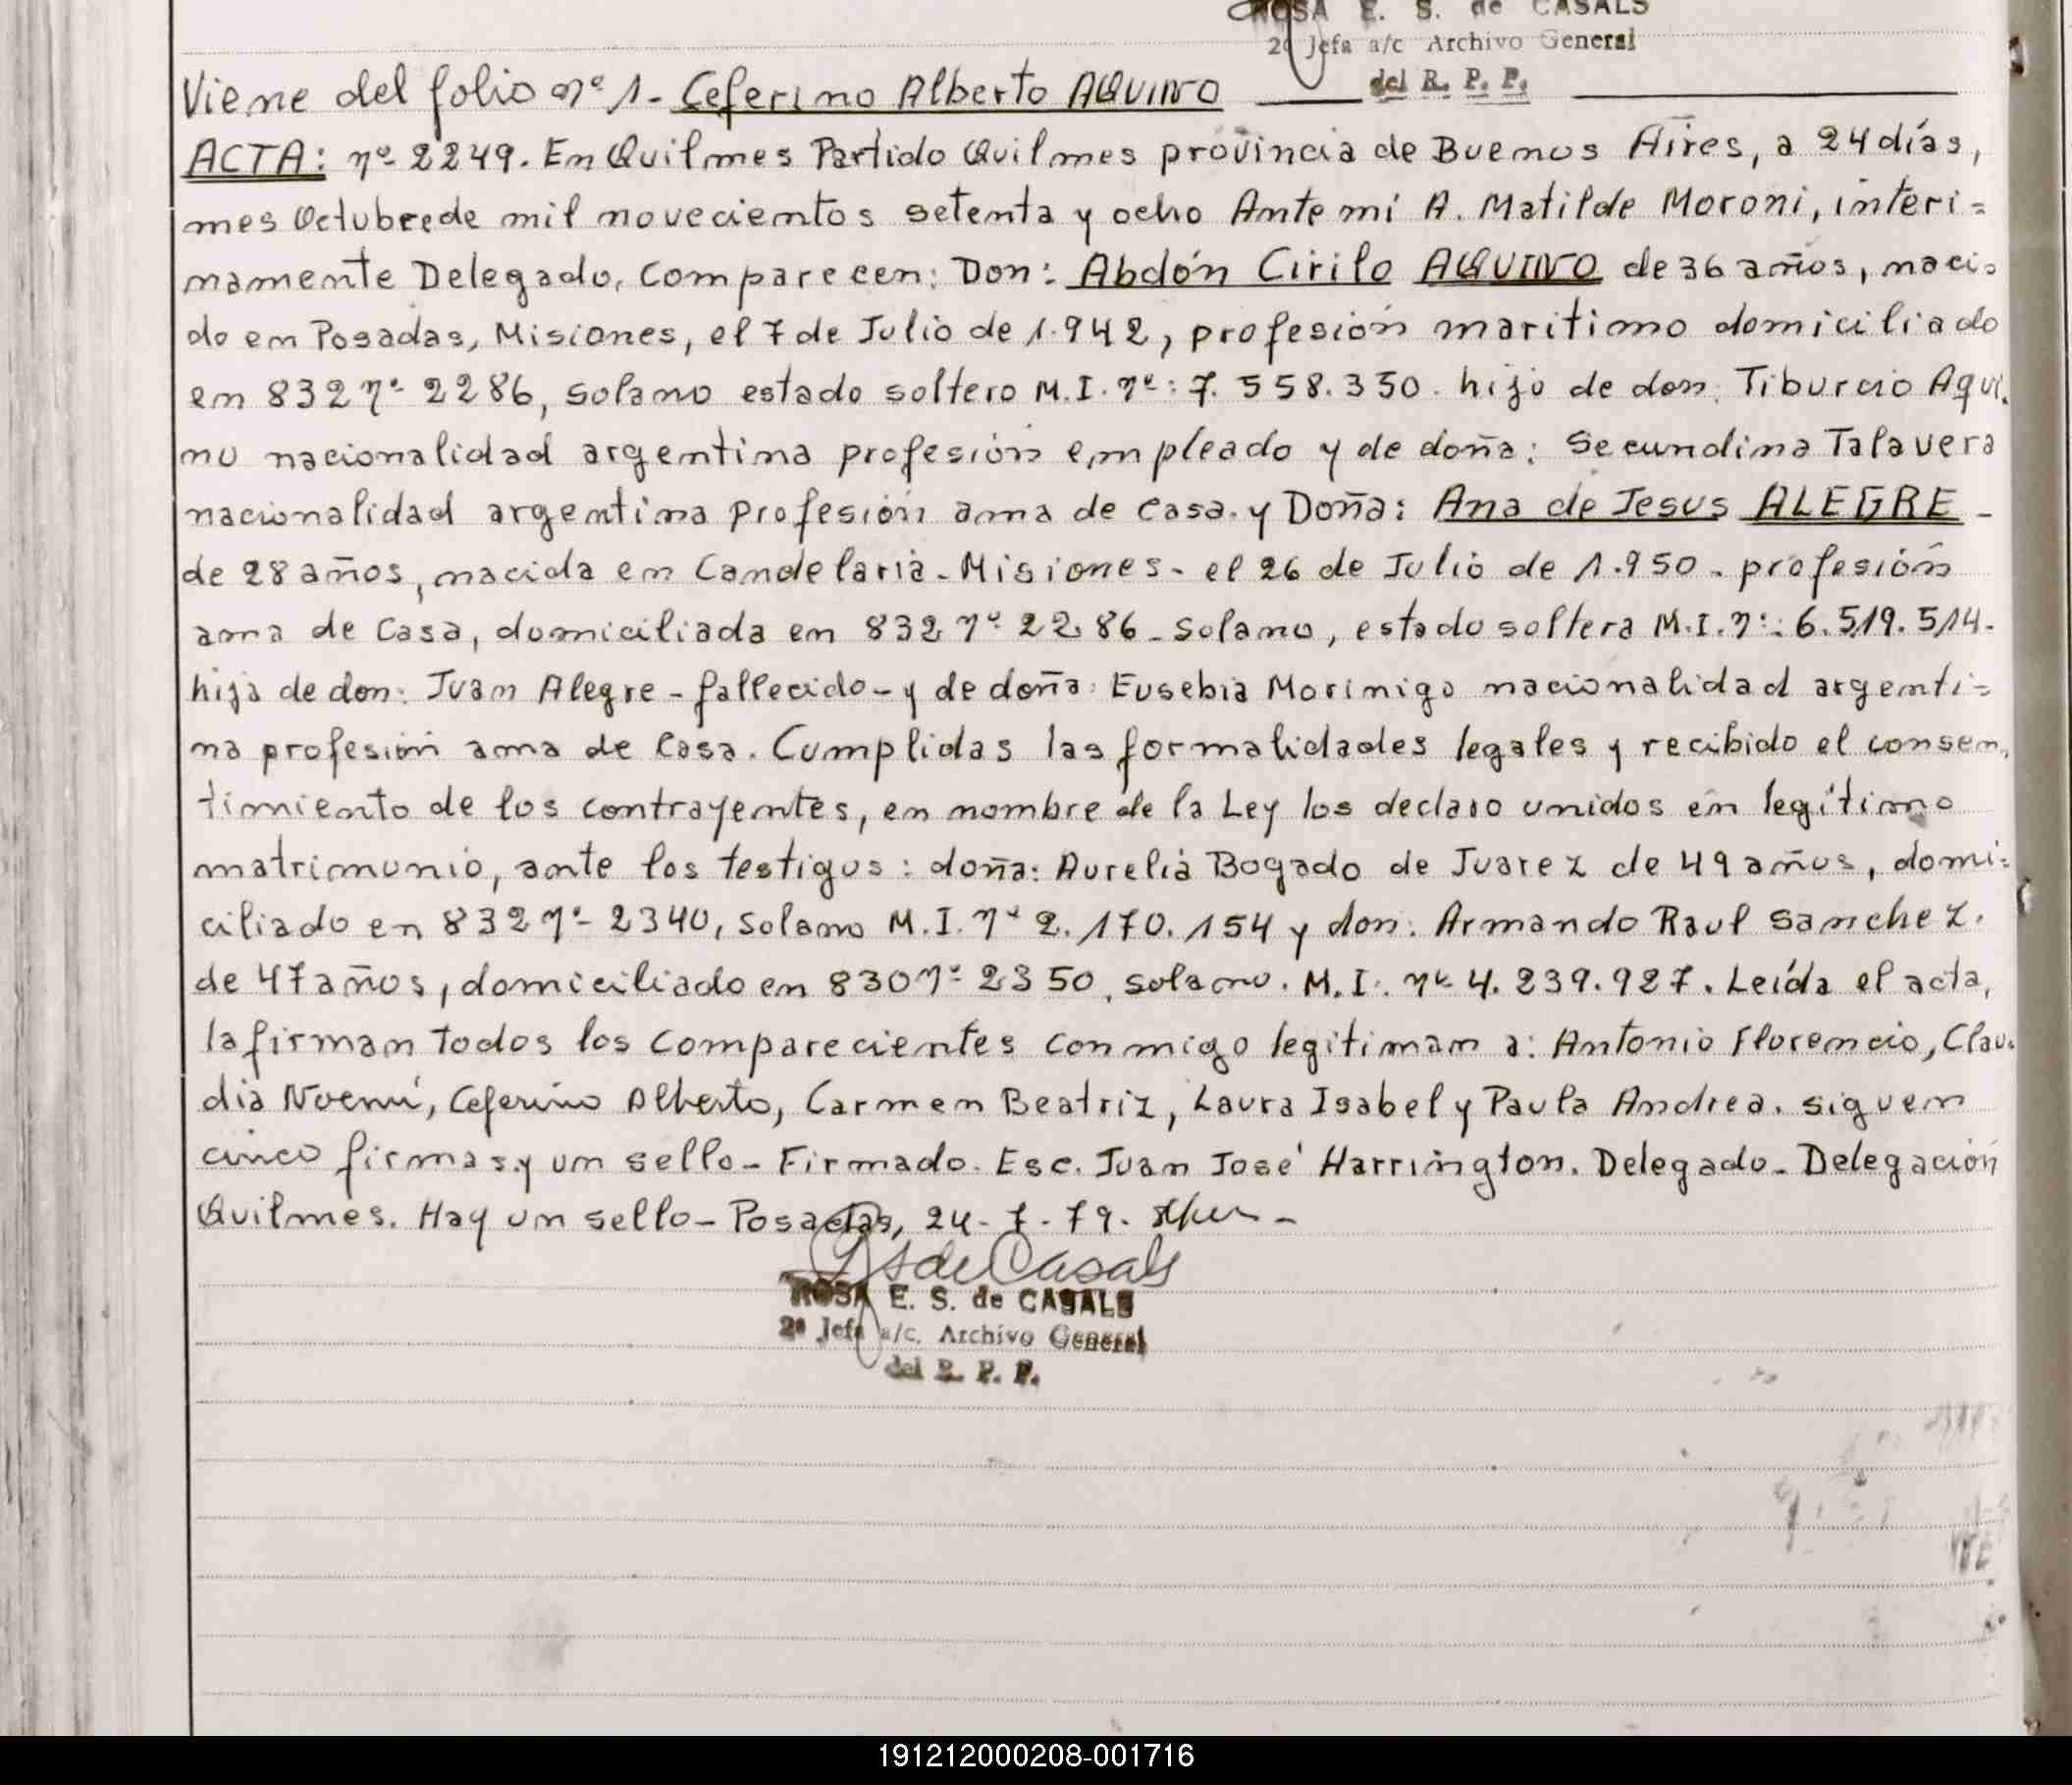 ROSA E. S. de CASALS
2º Jefa a/c Archivo General
del R. P. P.
Viene del folio nº 1 - Ceferino Alberto AQUINO
ACTA: nº 2249. En Quilmes Partido Quilmes provincia de Buenos Aires, a 24 días,
mes Octubre de mil novecientos setenta y ocho Ante mi A. Matilde Moroni, interi=
namente Delegado, Comparecen: Don: Abdón Cirilo AQUINO de 36 años, naci=
do en Posadas, Misiones, el 7 de Julio de 1.942, profesión maritimo domiciliado
en 832 nº 2286, Solano estado soltero M.I. nº: 7.558.350. hijo de don: Tiburcio Aqui-
no nacionalidad argentina profesión empleado y de doña: Secundina Talavera
nacionalidad argentina profesión ama de casa. y Doña: Ana de Jesus ALEGRE -
de 28 años, nacida en Candelaria - Misiones - el 26 de Julio de 1.950 - profesión
ama de Casa, domiciliada en 832 nº 2286 - Solano, estado soltera M.I. nº: 6.519.514.
hija de don: Juan Alegre - fallecido - y de doña: Eusebia Morinigo nacionalidad argenti=
na profesión ama de Casa. Cumplidas las formalidades legales y recibido el consen-
timiento de los contrayentes, en nombre de la Ley los declaro unidos en legítimo
matrimonio, ante los testigos: doña: Aurelia Bogado de Juarez de 49 años, domi=
ciliado en 832 nº 2340, Solano M.I. nº 2.170.154 y don: Armando Raul Sanchez.
de 47 años, domiciliado en 830 nº 2350, Solano. M.I. nº 4.239.927. Leída el acta,
la firman todos los comparecientes conmigo legitiman a: Antonio Florencio, Clau-
dia Noemí, Ceferino Alberto, Carmen Beatriz, Laura Isabel y Paula Andrea. siguen
cinco firmas y un sello - Firmado. Esc. Juan José Harrington. Delegado - Delegación
Quilmes. Hay un sello - Posadas, 24 - 7 - 79.
de Casals
ROSA E. S. de CASALS
2º Jefa a/c. Archivo General
del R. P. P.
191212000208-001716